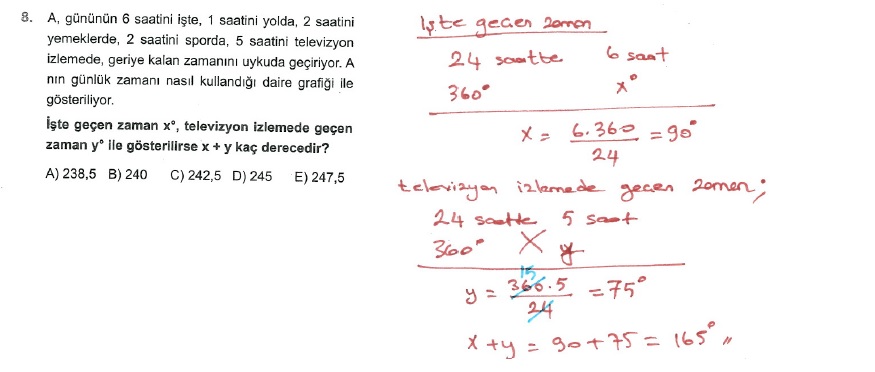 8. A, gününün 6 saatini işte, 1 saatini yolda, 2 saatini
yemeklerde, 2 saatini sporda, 5 saatini televizyon
izlemede, geriye kalan zamanını uykuda geçiriyor. A
nın günlük zamanı nasıl kullandığı daire grafiği ile
gösteriliyor.
İşte geçen zaman x°, televizyon izlemede geçen
zaman y° ile gösterilirse x + y kaç derecedir?
A) 238,5 B) 240 C) 242,5 D) 245 E) 247,5
İşte geçen zaman
24 saatte 6 saat
360° x°
x = 6.360 / 24 = 90°
televizyon izlemede geçen zaman;
24 saatte 5 saat
360° y
15
y = 360.5 / 24 = 75°
x + y = 90 + 75 = 165° //